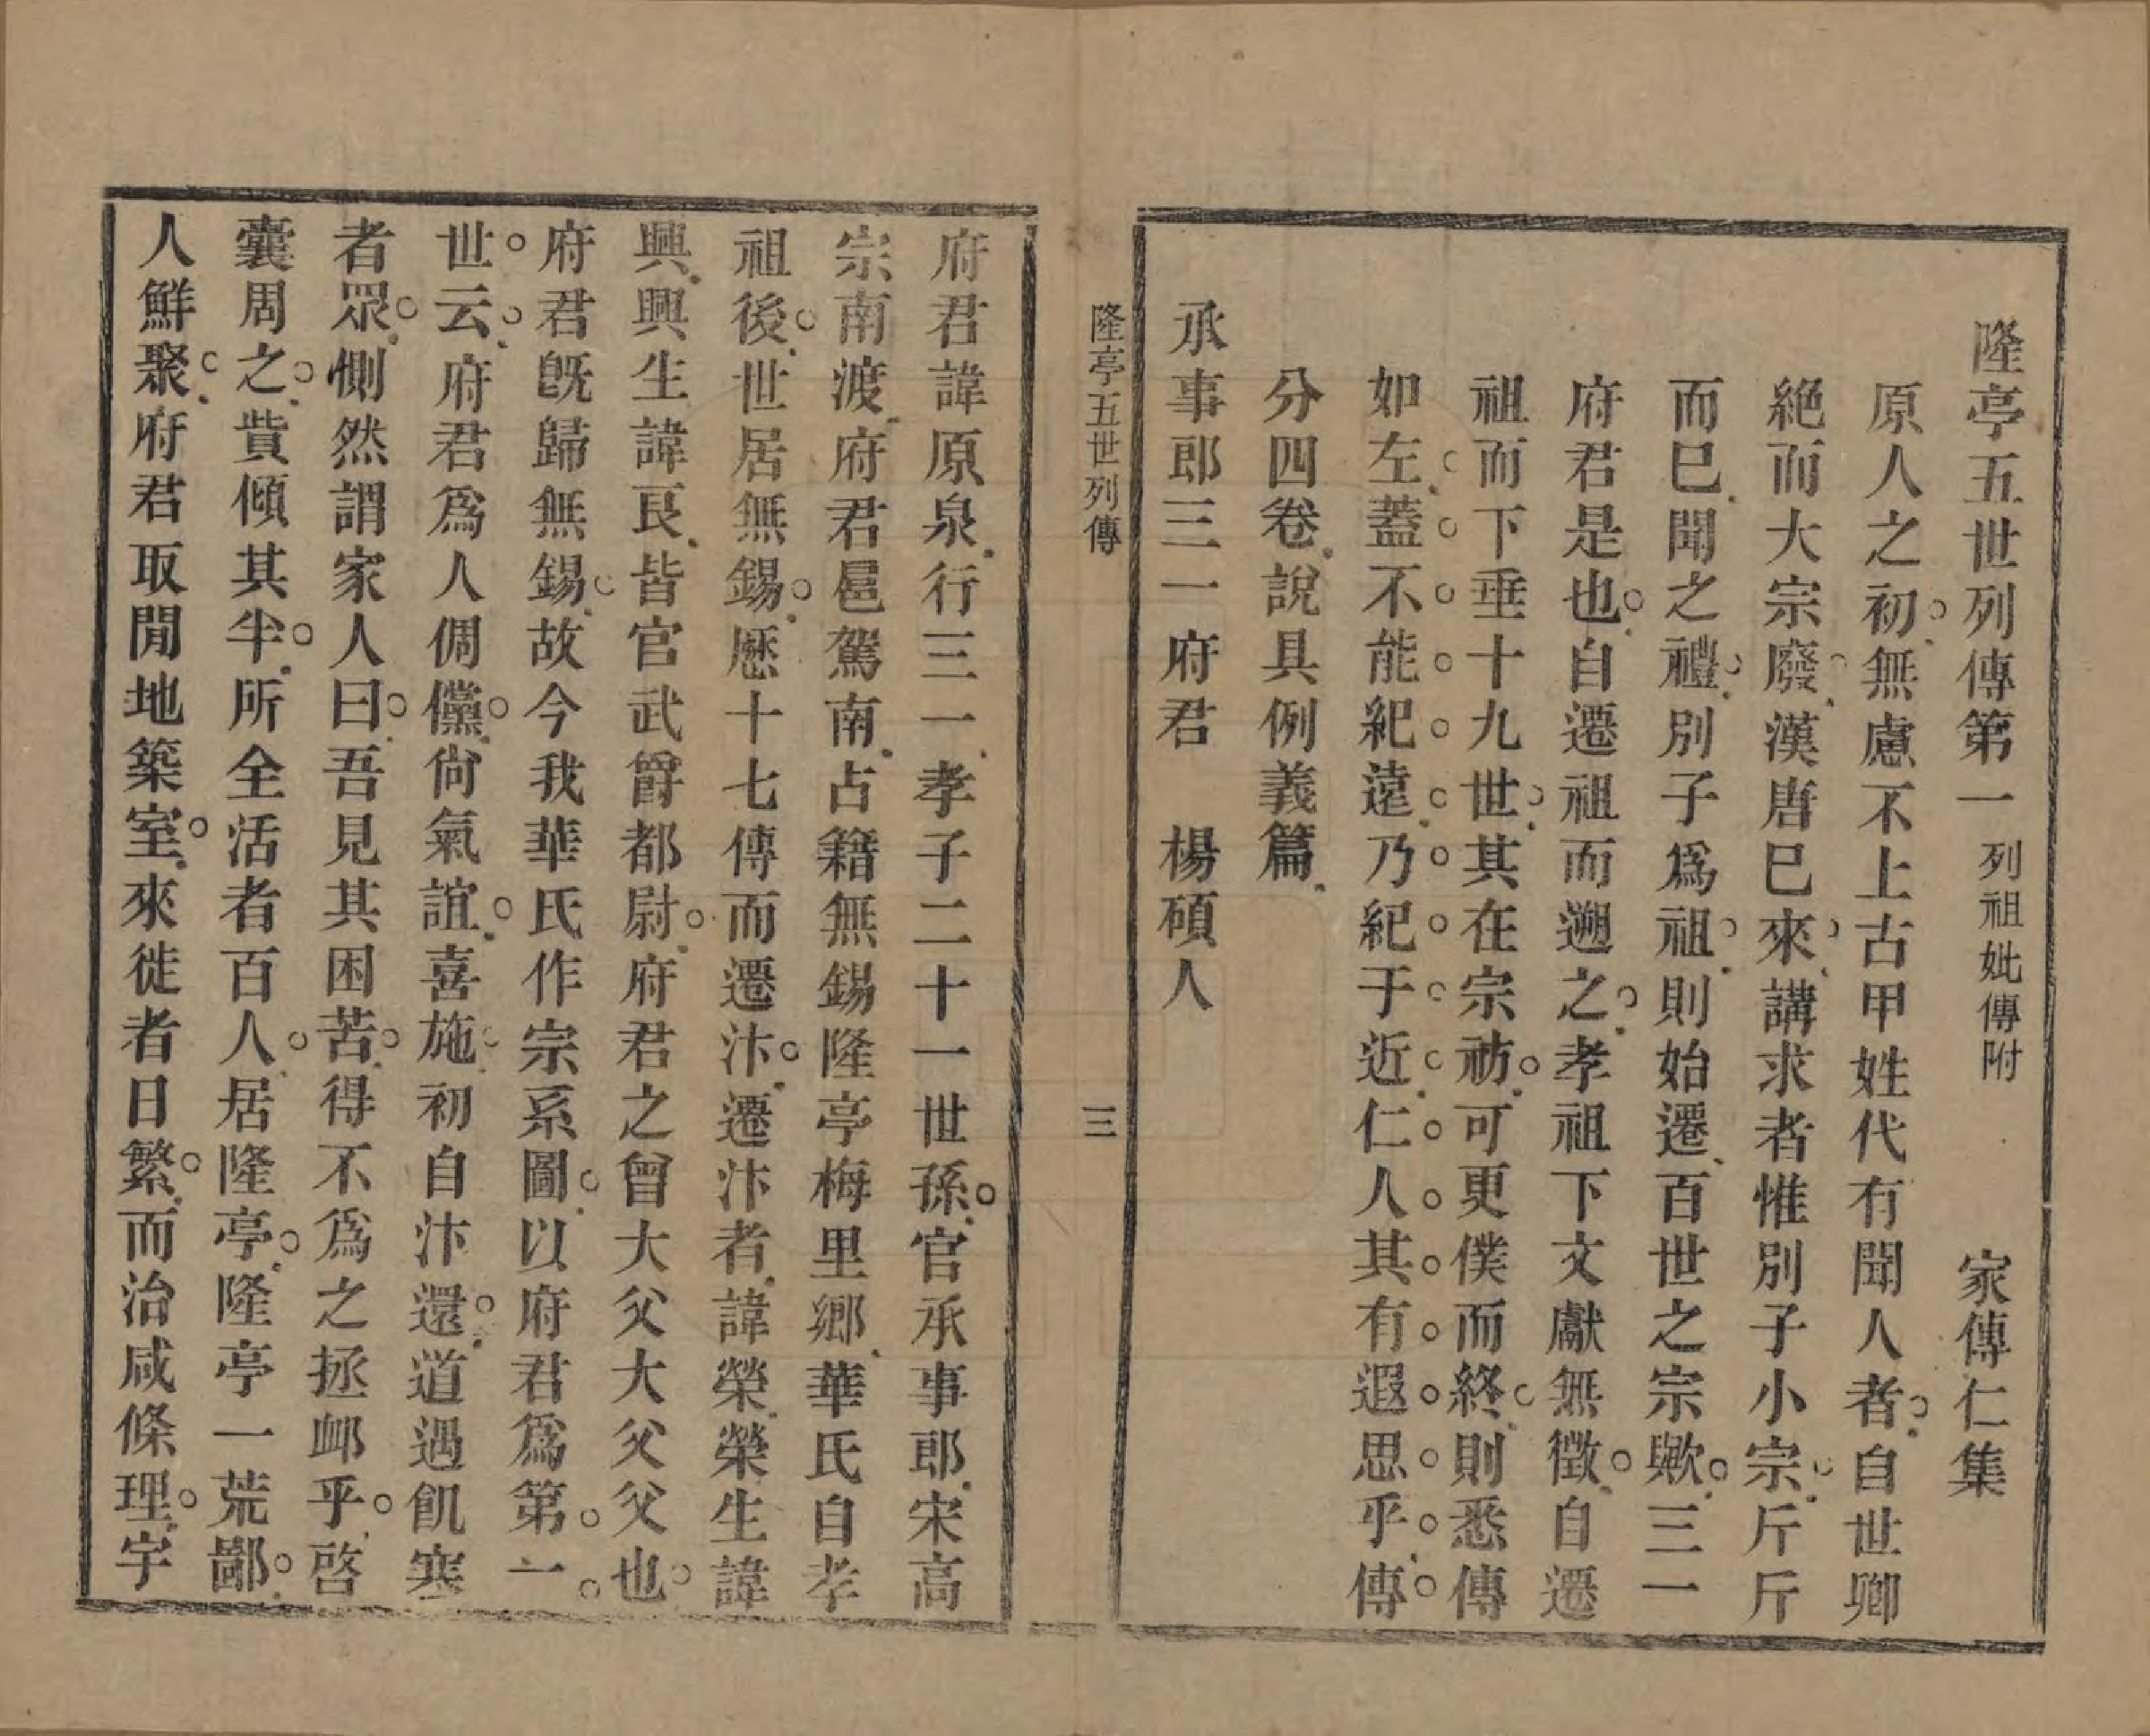 隆亭五世列傳第一 列祖妣傳附 家傳仁集
原人之初無慮不上古甲姓代有聞人者自世卿
絕而大宗廢漢唐巳來講求者惟別子小宗斤斤
而巳聞之禮別子爲祖則始遷百世之宗歟三一
府君是也自遷祖而遡之孝祖下文獻無徵自遷
祖而下垂十九世其在宗祊可更僕而終則悉傳
如左蓋不能紀遠乃紀于近仁人其有遐思乎傳
分四卷說具例義篇
承事郎三一府君 楊碩人
隆亭五世列傳 三
府君諱原泉行三一孝子二十一世孫官承事郎宋高
宗南渡府君扈駕南占籍無錫隆亭梅里鄉華氏自孝
祖後世居無錫歷十七傳而遷汴遷汴者諱榮榮生諱
興興生諱㫐皆官武爵都尉府君之曾大父大父父也
府君旣歸無錫故今我華氏作宗系圖以府君爲第一
世云府君爲人倜儻尙氣誼喜施初自汴還道遇飢寒
者眾惻然謂家人曰吾見其困苦得不爲之拯邺乎啓
囊周之貲傾其半所全活者百人居隆亭隆亭一荒鄙
人鮮聚府君取閒地築室來徙者日繁而治咸條理宇